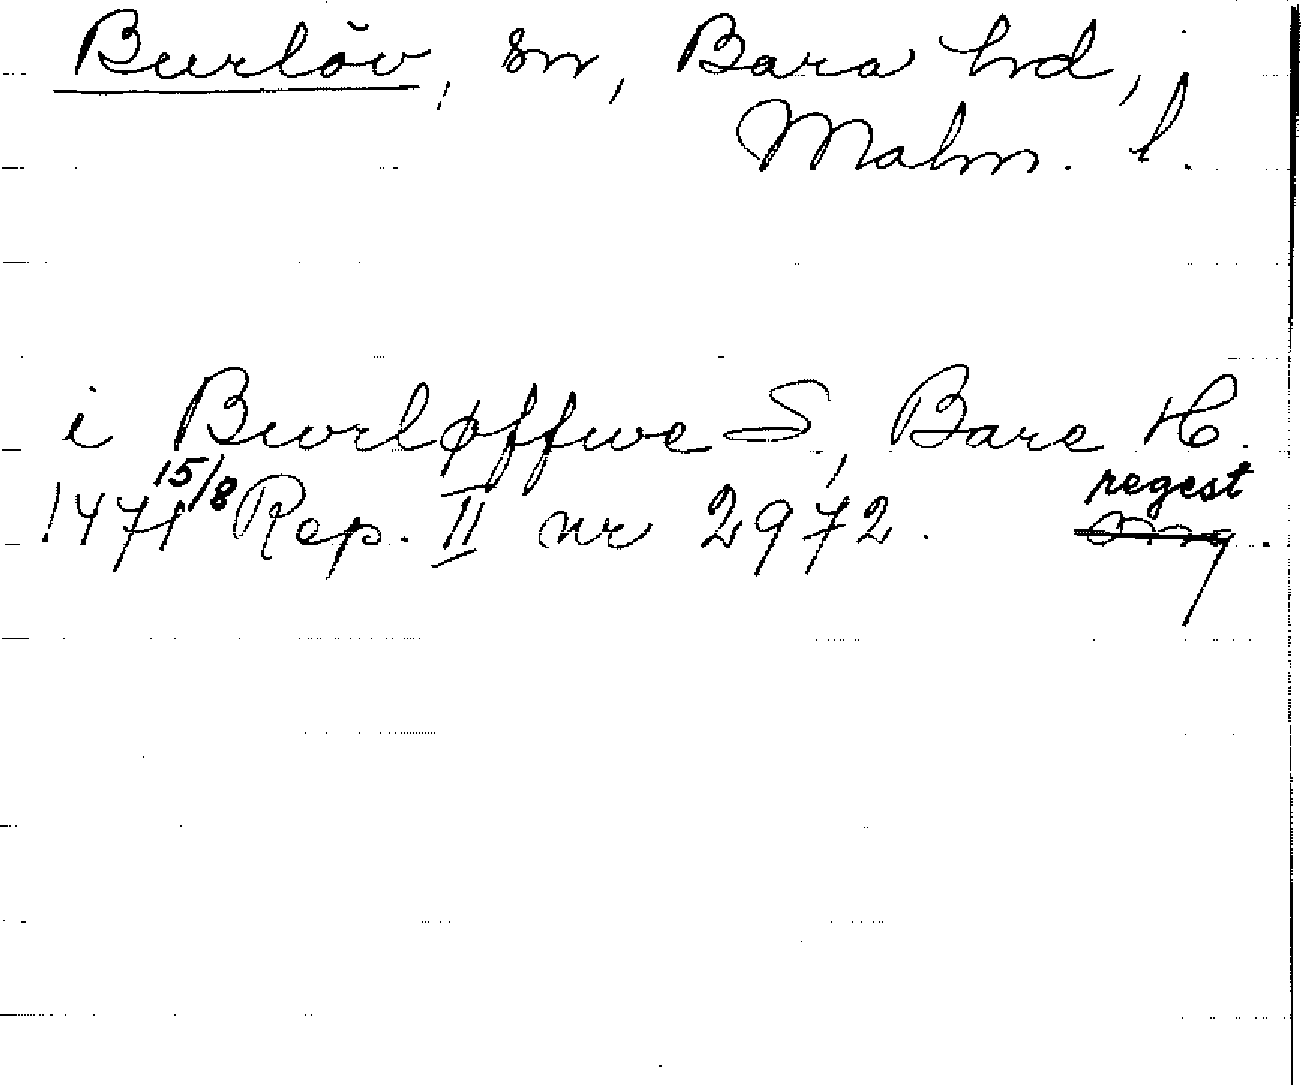 Burlöv, sn, Bara hd,
Malm. l.
i Bworløffwe S, Bare H.
1471 15/8 Rep. II nr 2972. regest